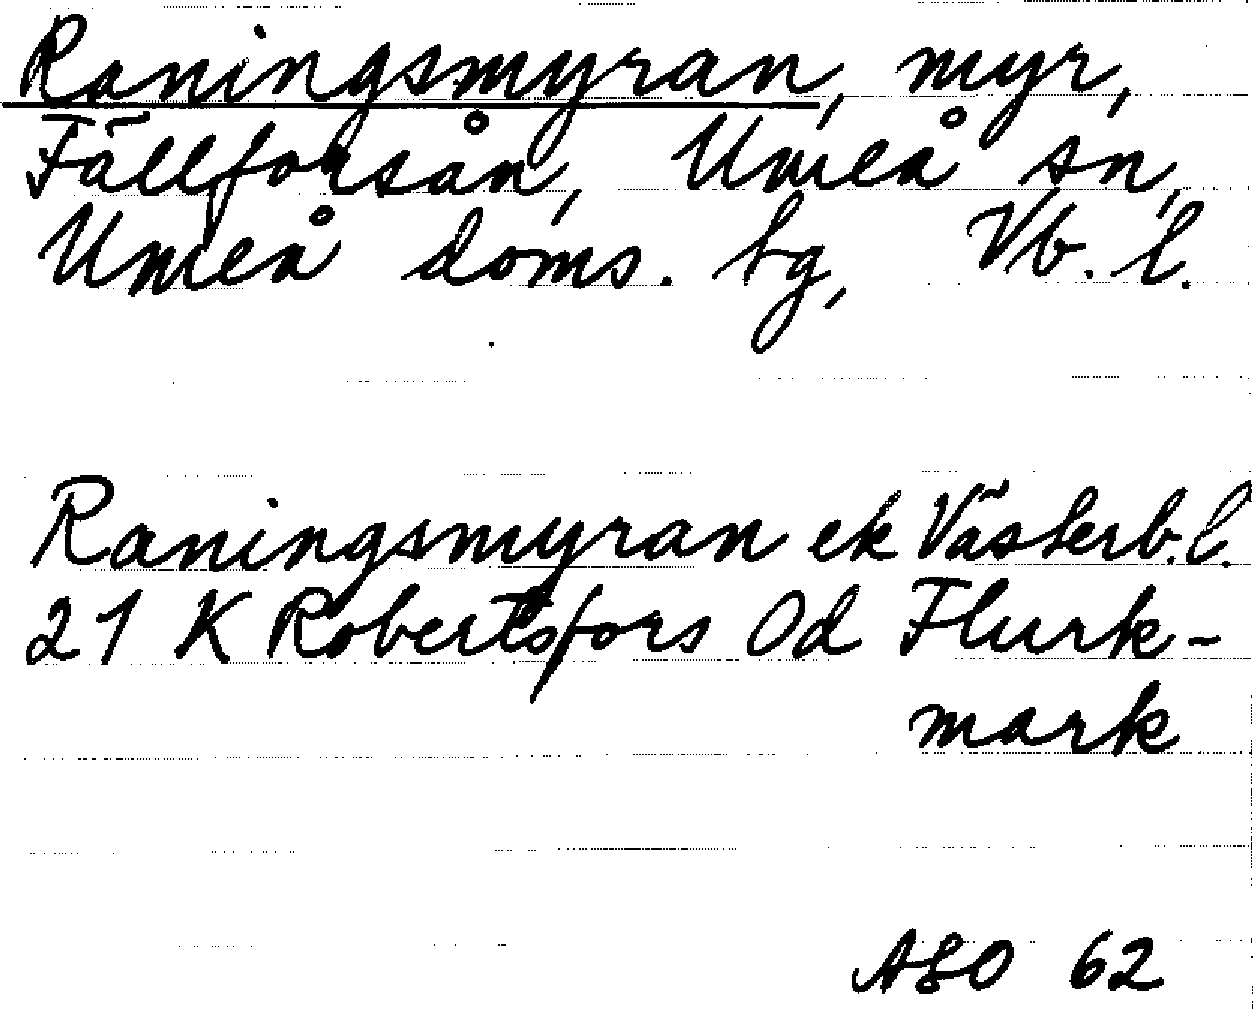 Raningsmyran, myr,
Fällforsån, Umeå sn,
Umeå doms. tg, Vb. l.
Raningsmyran ek Västerb. l.
21 K Robertsfors Od Flurk-
mark
ASO 62